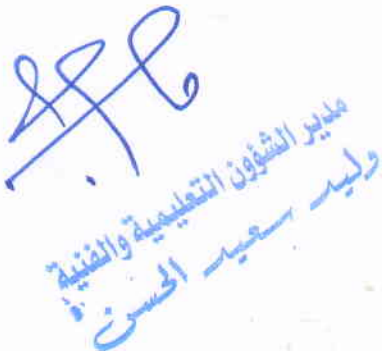 مدير الشؤون التعليمية والفنية
وليد سعيد الحسن